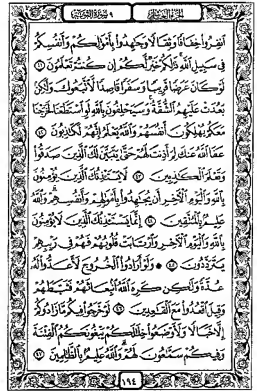 الجزء العاشر ٩ سورة التوبة
ٱنفِرُوا۟ خِفَافًا وَثِقَالًا وَجَٰهِدُوا۟ بِأَمْوَٰلِكُمْ وَأَنفُسِكُمْ
فِى سَبِيلِ ٱللَّهِ ذَٰلِكُمْ خَيْرٌ لَّكُمْ إِن كُنتُمْ تَعْلَمُونَ ٤١
لَوْ كَانَ عَرَضًا قَرِيبًا وَسَفَرًا قَاصِدًا لَّٱتَّبَعُوكَ وَلَٰكِنۢ
بَعُدَتْ عَلَيْهِمُ ٱلشُّقَّةُ وَسَيَحْلِفُونَ بِٱللَّهِ لَوِ ٱسْتَطَعْنَا لَخَرَجْنَا
مَعَكُمْ يُهْلِكُونَ أَنفُسَهُمْ وَٱللَّهُ يَعْلَمُ إِنَّهُمْ لَكَٰذِبُونَ ٤٢
عَفَا ٱللَّهُ عَنكَ لِمَ أَذِنتَ لَهُمْ حَتَّىٰ يَتَبَيَّنَ لَكَ ٱلَّذِينَ صَدَقُوا۟
وَتَعْلَمَ ٱلْكَٰذِبِينَ ٤٣ لَا يَسْتَـْٔذِنُكَ ٱلَّذِينَ يُؤْمِنُونَ
بِٱللَّهِ وَٱلْيَوْمِ ٱلْءَاخِرِ أَن يُجَٰهِدُوا۟ بِأَمْوَٰلِهِمْ وَأَنفُسِهِمْ وَٱللَّهُ
عَلِيمٌۢ بِٱلْمُتَّقِينَ ٤٤ إِنَّمَا يَسْتَـْٔذِنُكَ ٱلَّذِينَ لَا يُؤْمِنُونَ
بِٱللَّهِ وَٱلْيَوْمِ ٱلْءَاخِرِ وَٱرْتَابَتْ قُلُوبُهُمْ فَهُمْ فِى رَيْبِهِمْ
يَتَرَدَّدُونَ ٤٥ ۞ وَلَوْ أَرَادُوا۟ ٱلْخُرُوجَ لَأَعَدُّوا۟ لَهُۥ
عُدَّةً وَلَٰكِن كَرِهَ ٱللَّهُ ٱنۢبِعَاثَهُمْ فَثَبَّطَهُمْ
وَقِيلَ ٱقْعُدُوا۟ مَعَ ٱلْقَٰعِدِينَ ٤٦ لَوْ خَرَجُوا۟ فِيكُم مَّا زَادُوكُمْ
إِلَّا خَبَالًا وَلَأَوْضَعُوا۟ خِلَٰلَكُمْ يَبْغُونَكُمُ ٱلْفِتْنَةَ
وَفِيكُمْ سَمَّٰعُونَ لَهُمْ وَٱللَّهُ عَلِيمٌۢ بِٱلظَّٰلِمِينَ ٤٧
١٩٤